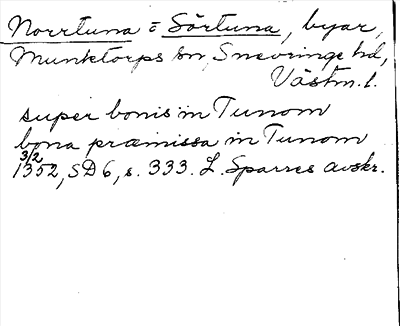 Norrtuna = Sörtuna, byar,
Munktorps sn, Snevringe hd,
Västm. l.
super bonis in Tunom
bona præmissa in Tunom
3/2
1352, SD 6, s. 333. L. Sparres avskr.